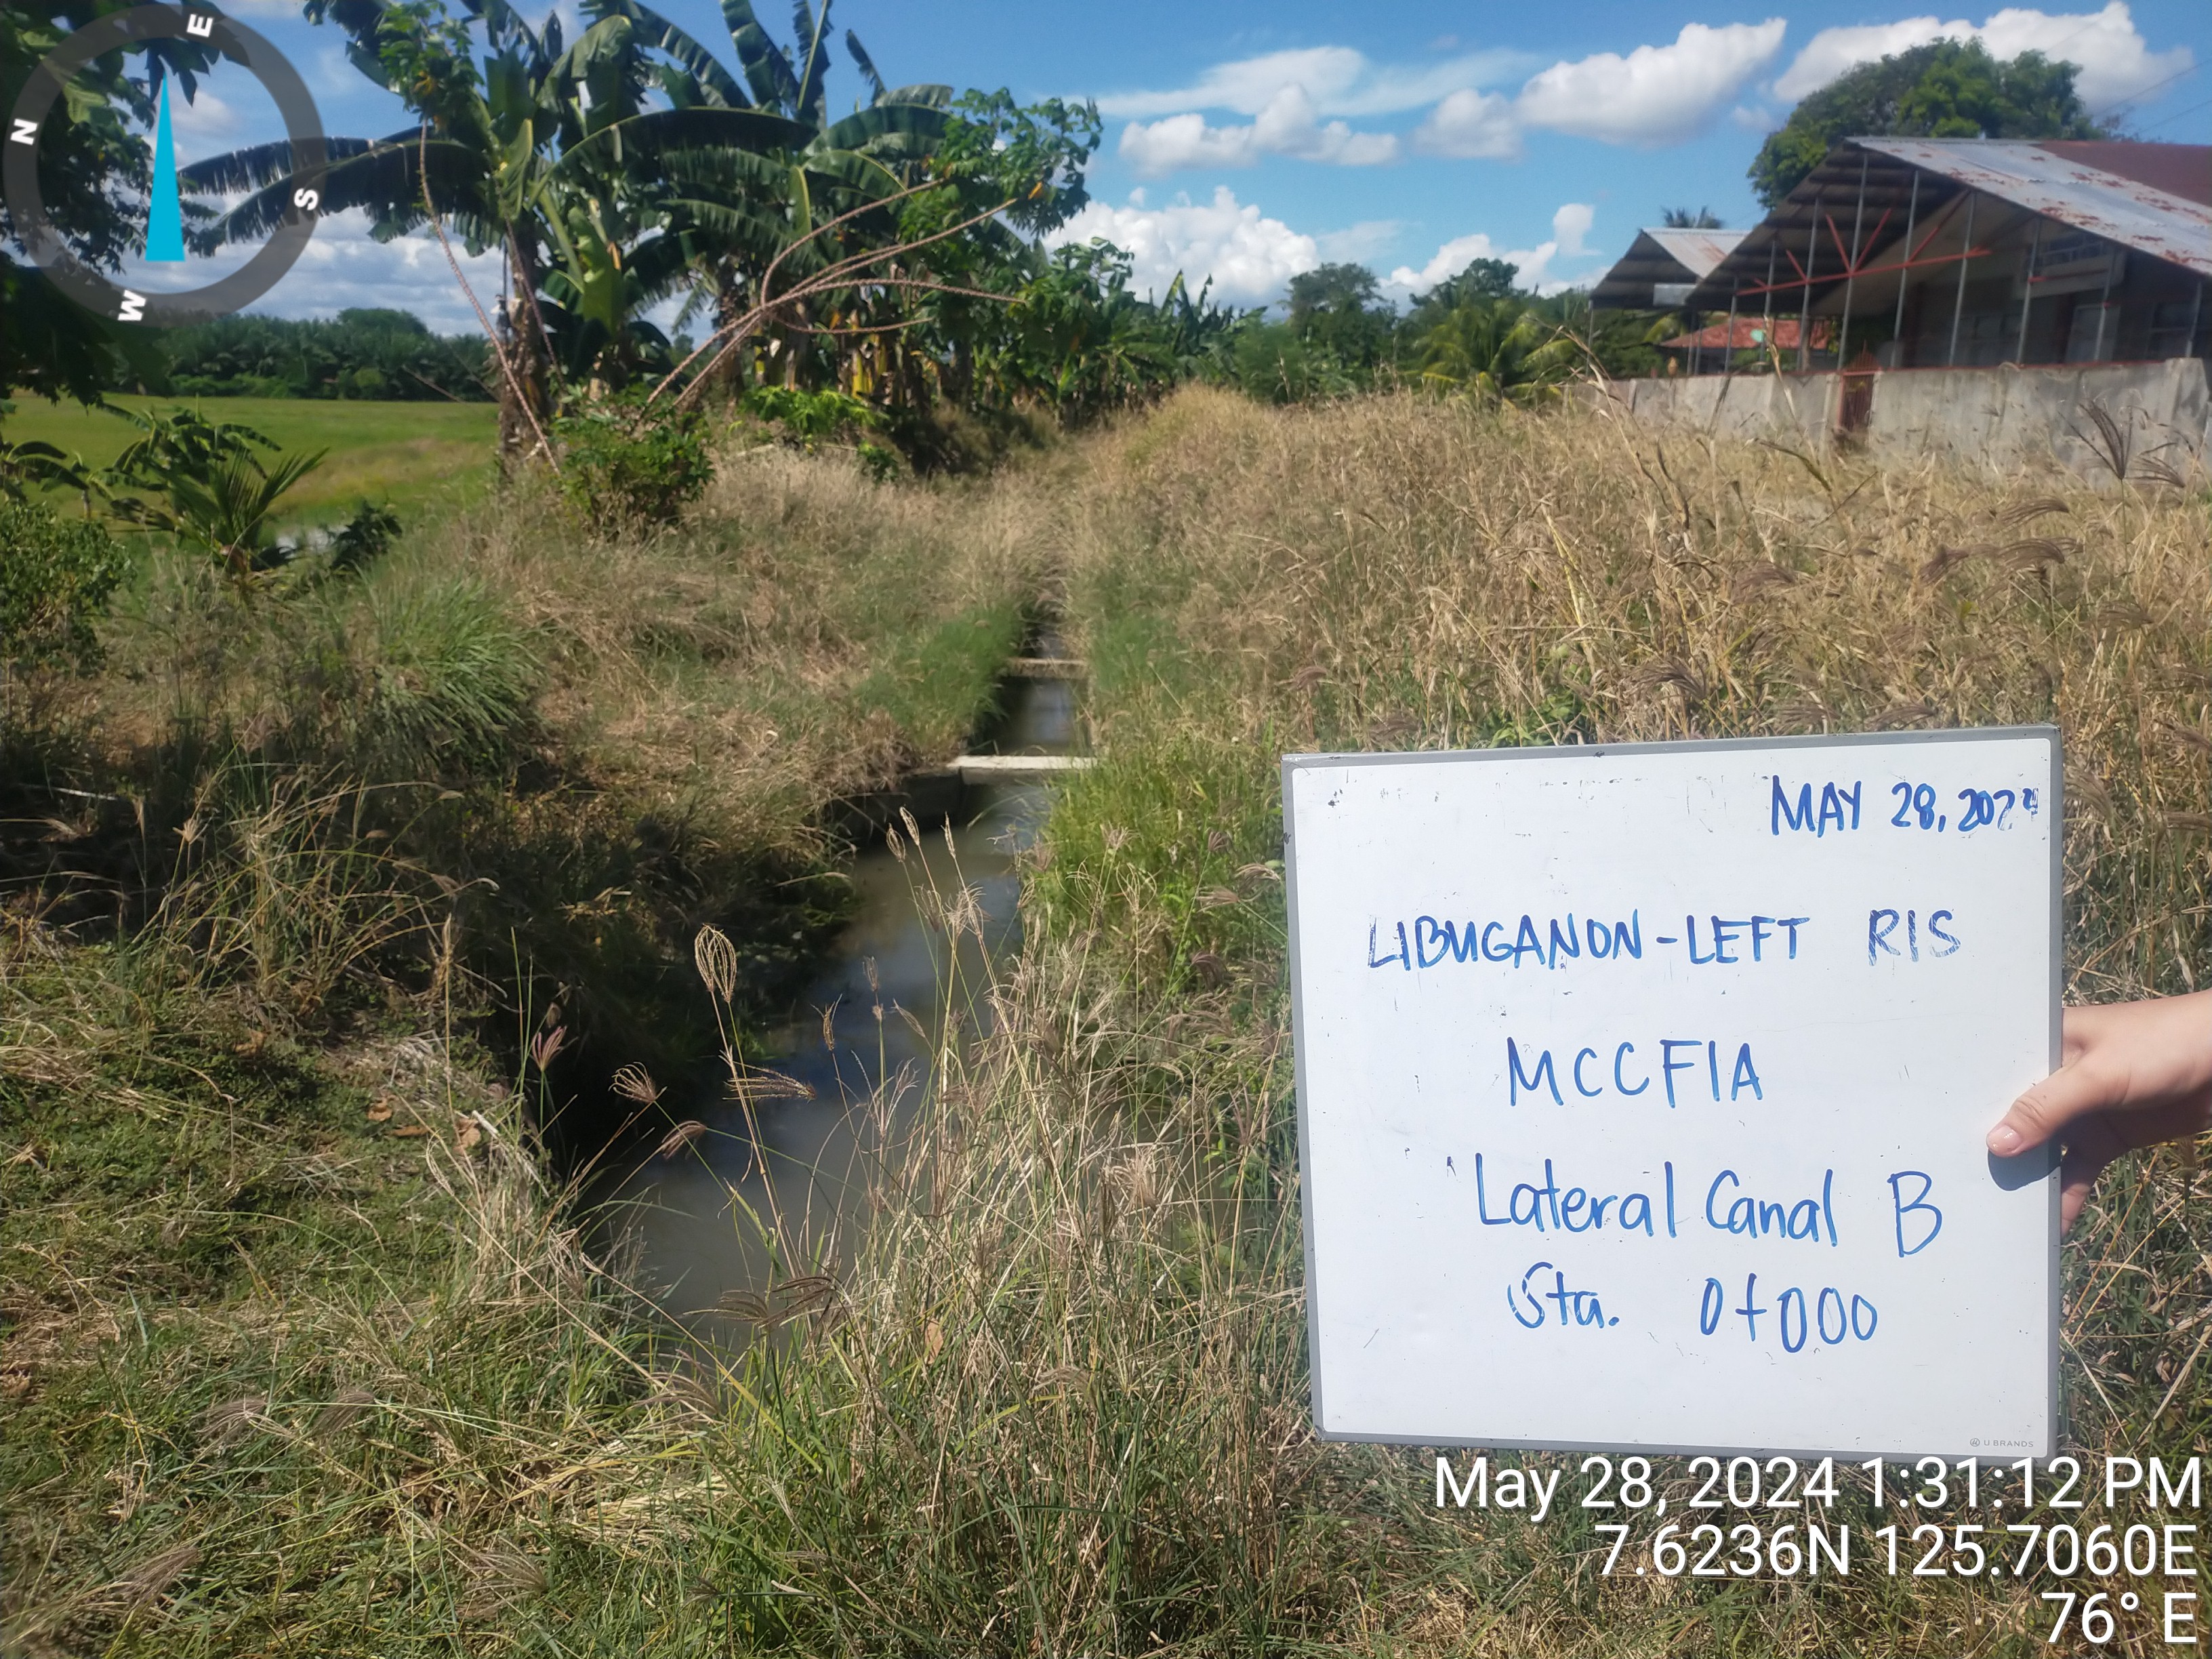 E
N
S
W
MAY 28, 2024
LIBUGANON-LEFT RIS
MCCFIA
Lateral Canal B
Sta. 0+000
U BRANDS
May 28, 2024 1:31:12 PM
7.6236N 125.7060E
76° E